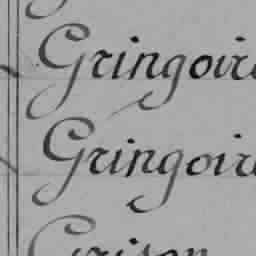 Gringoire
Gringoire
Grison